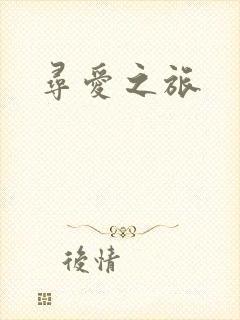 尋愛之旅
後情